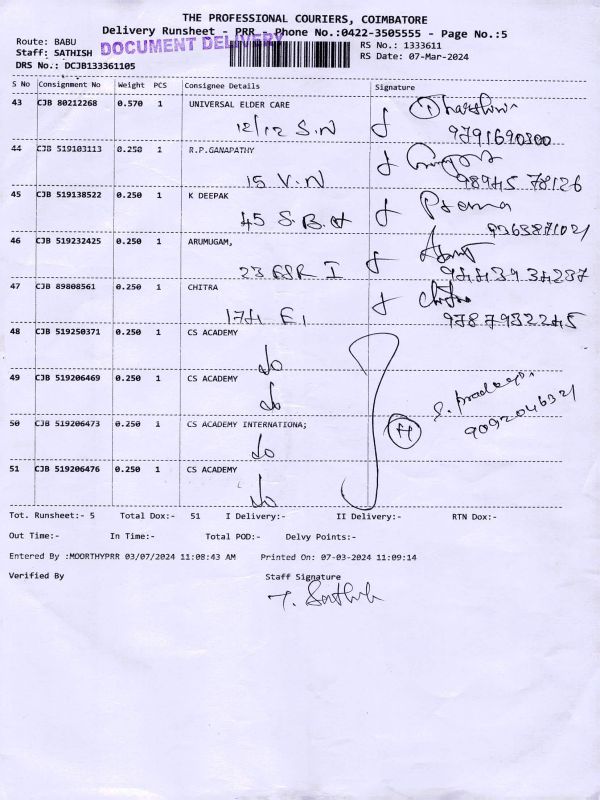 THE PROFESSIONAL COURIERS, COIMBATORE
Delivery Runsheet - PRR - Phone No.:0422-3505555 - Page No.:5
Route: BABU
DOCUMENT DELIVERY
RS No.: 1333611
Staff: SATHISH
RS Date: 07-Mar-2024
DRS No.: DCJB133361105
S No Consignment No Weight PCS Consignee Details Signature
43 CJB 80212268 0.570 1 UNIVERSAL ELDER CARE
12/12 S.N 9791690300
44 CJB 519103113 0.250 1 R.P.GANAPATHY
15 V.N 98945 78126
45 CJB 519138522 0.250 1 K DEEPAK Prema
45 S.B.H
46 CJB 519232425 0.250 1 ARUMUGAM,
23 GSR I 9443934237
47 CJB 89808561 0.250 1 CHITRA Chitra
174 E1 9787932245
48 CJB 519250371 0.250 1 CS ACADEMY
do
49 CJB 519206469 0.250 1 CS ACADEMY
do S. pradeep
50 CJB 519206473 0.250 1 CS ACADEMY INTERNATIONA; 9092046321
do
51 CJB 519206476 0.250 1 CS ACADEMY
do
Tot. Runsheet:- 5 Total Dox:- 51 I Delivery:- II Delivery:- RTN Dox:-
Out Time:- In Time:- Total POD:- Delvy Points:-
Entered By :MOORTHYPRR 03/07/2024 11:08:43 AM Printed On: 07-03-2024 11:09:14
Verified By Staff Signature
T. Sathish